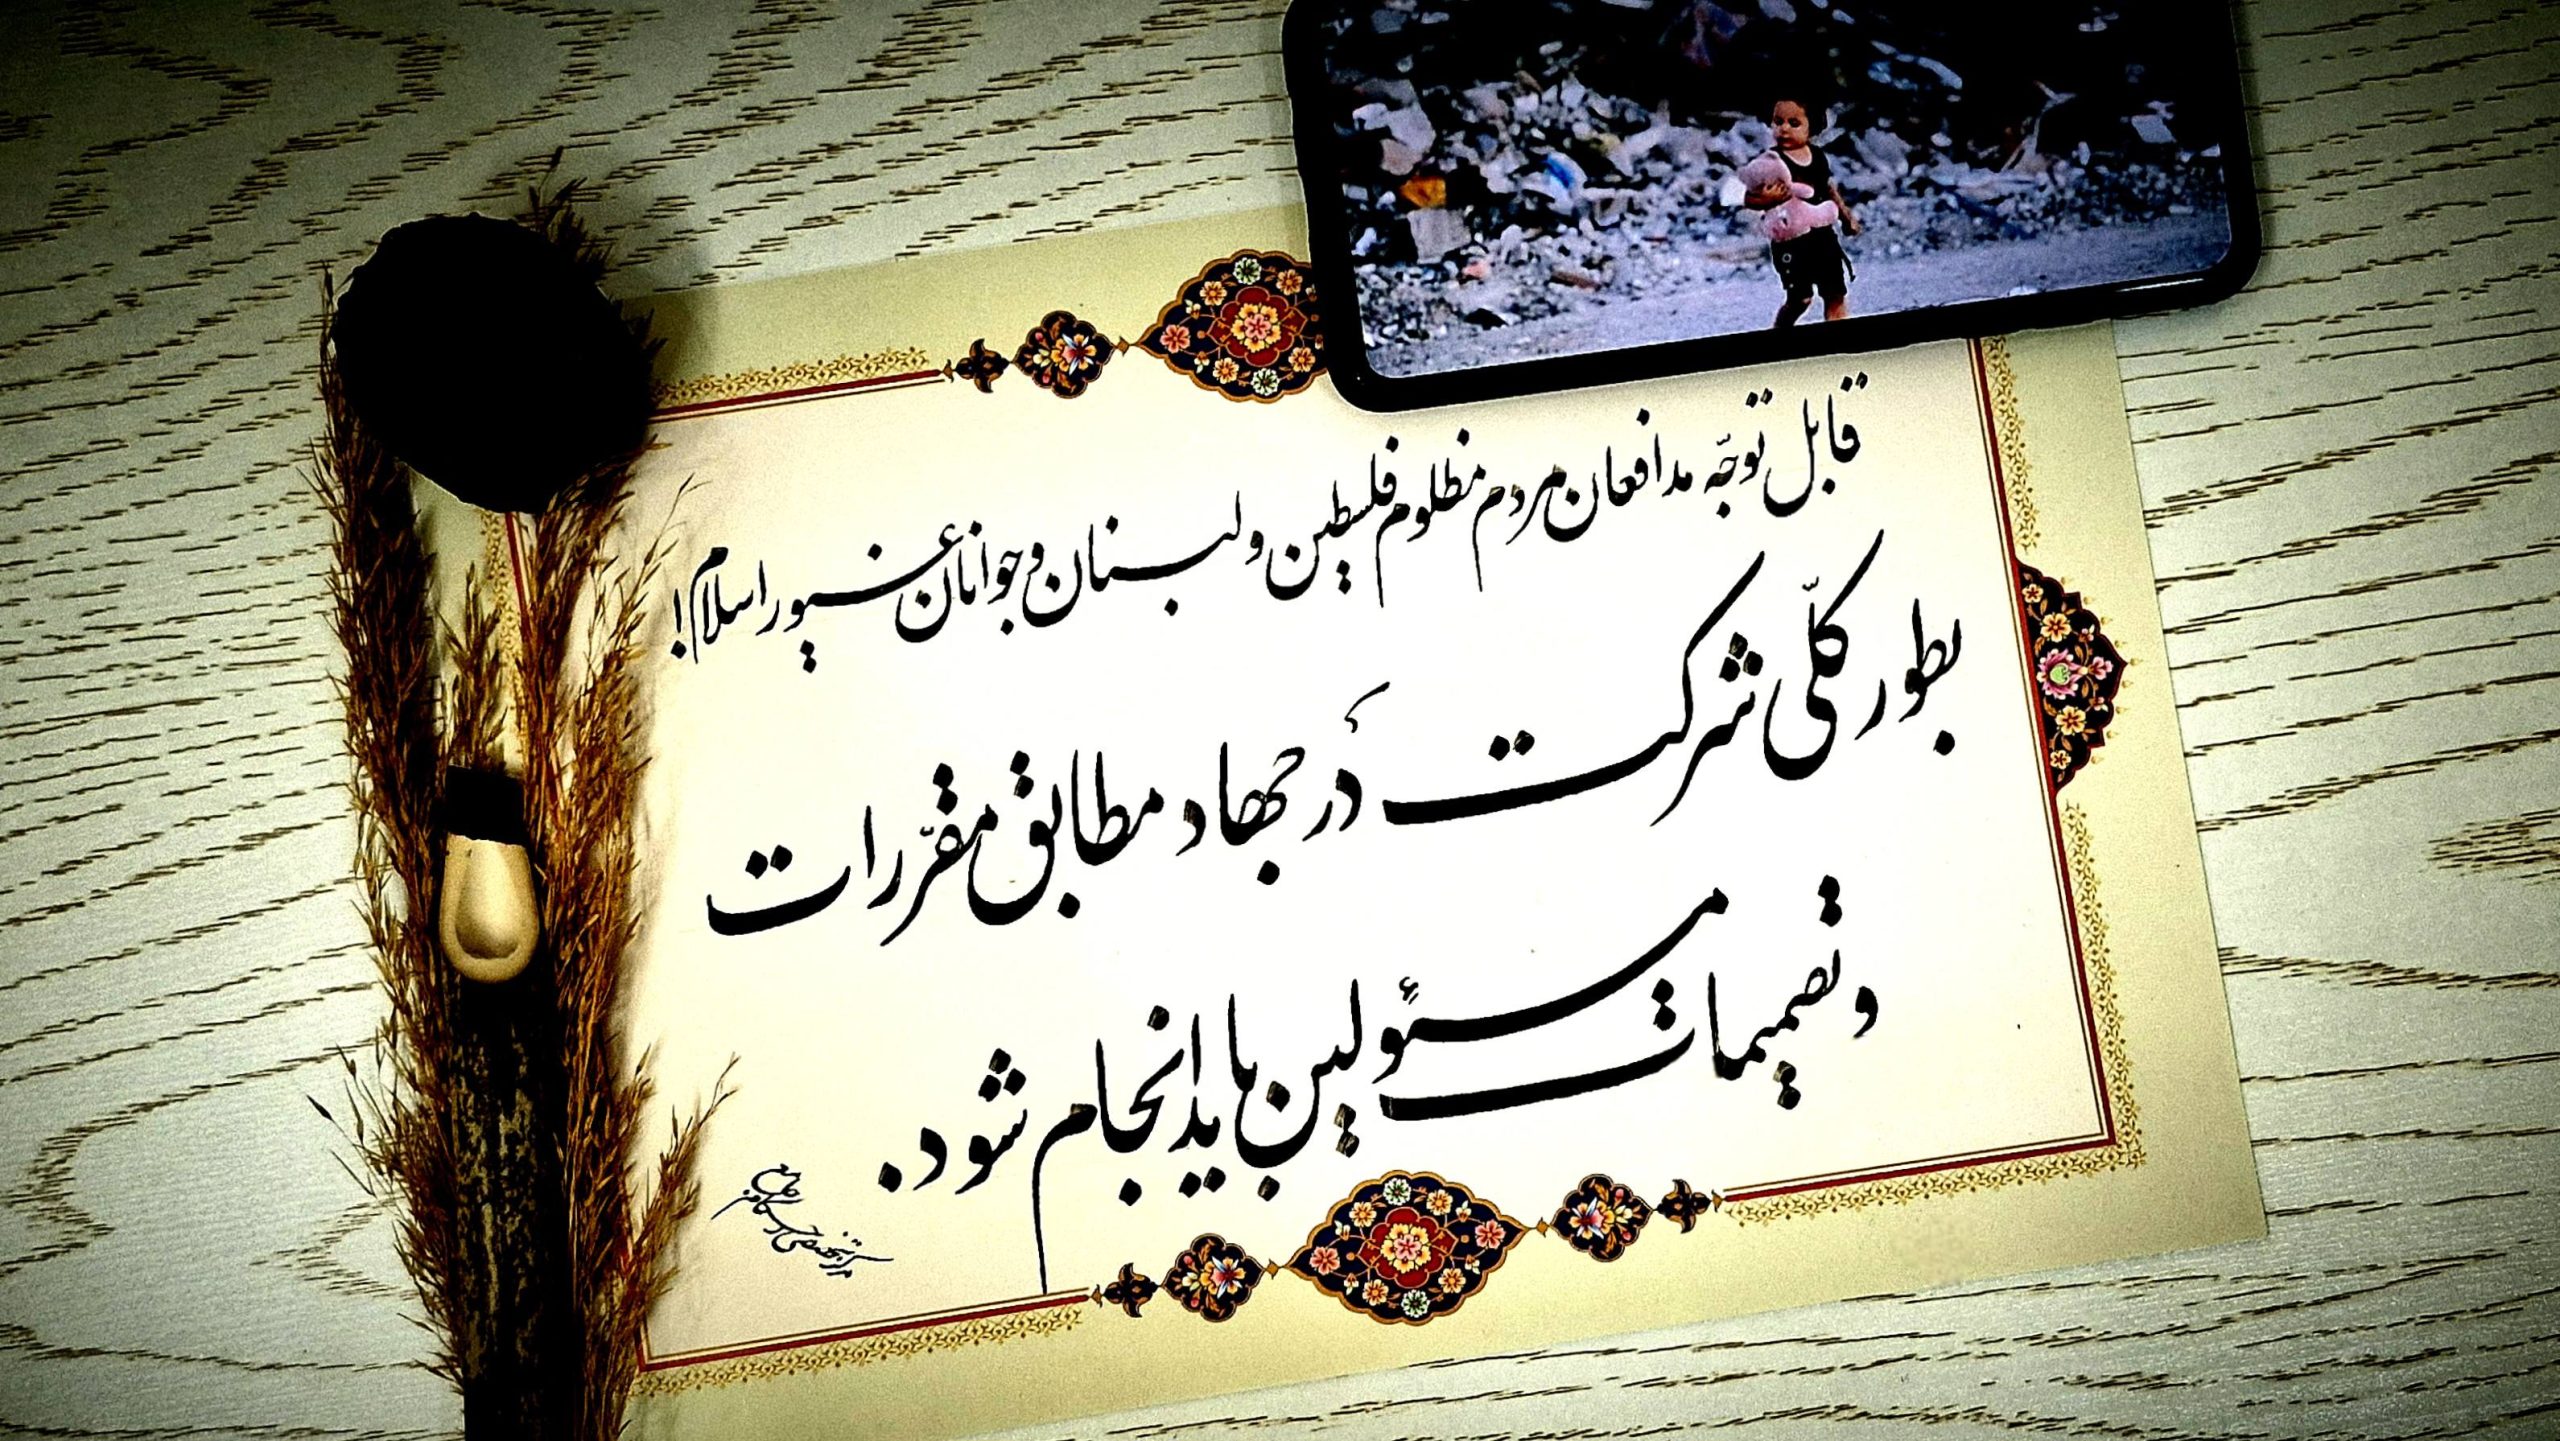 قابل توجّه مدافعان مردم مظلوم فلسطین و لبنان و جوانان غیور اسلام!
بطور کلّی شرکت در جهاد مطابق مقرّرات
و تصمیمات مسئولین باید انجام شود.